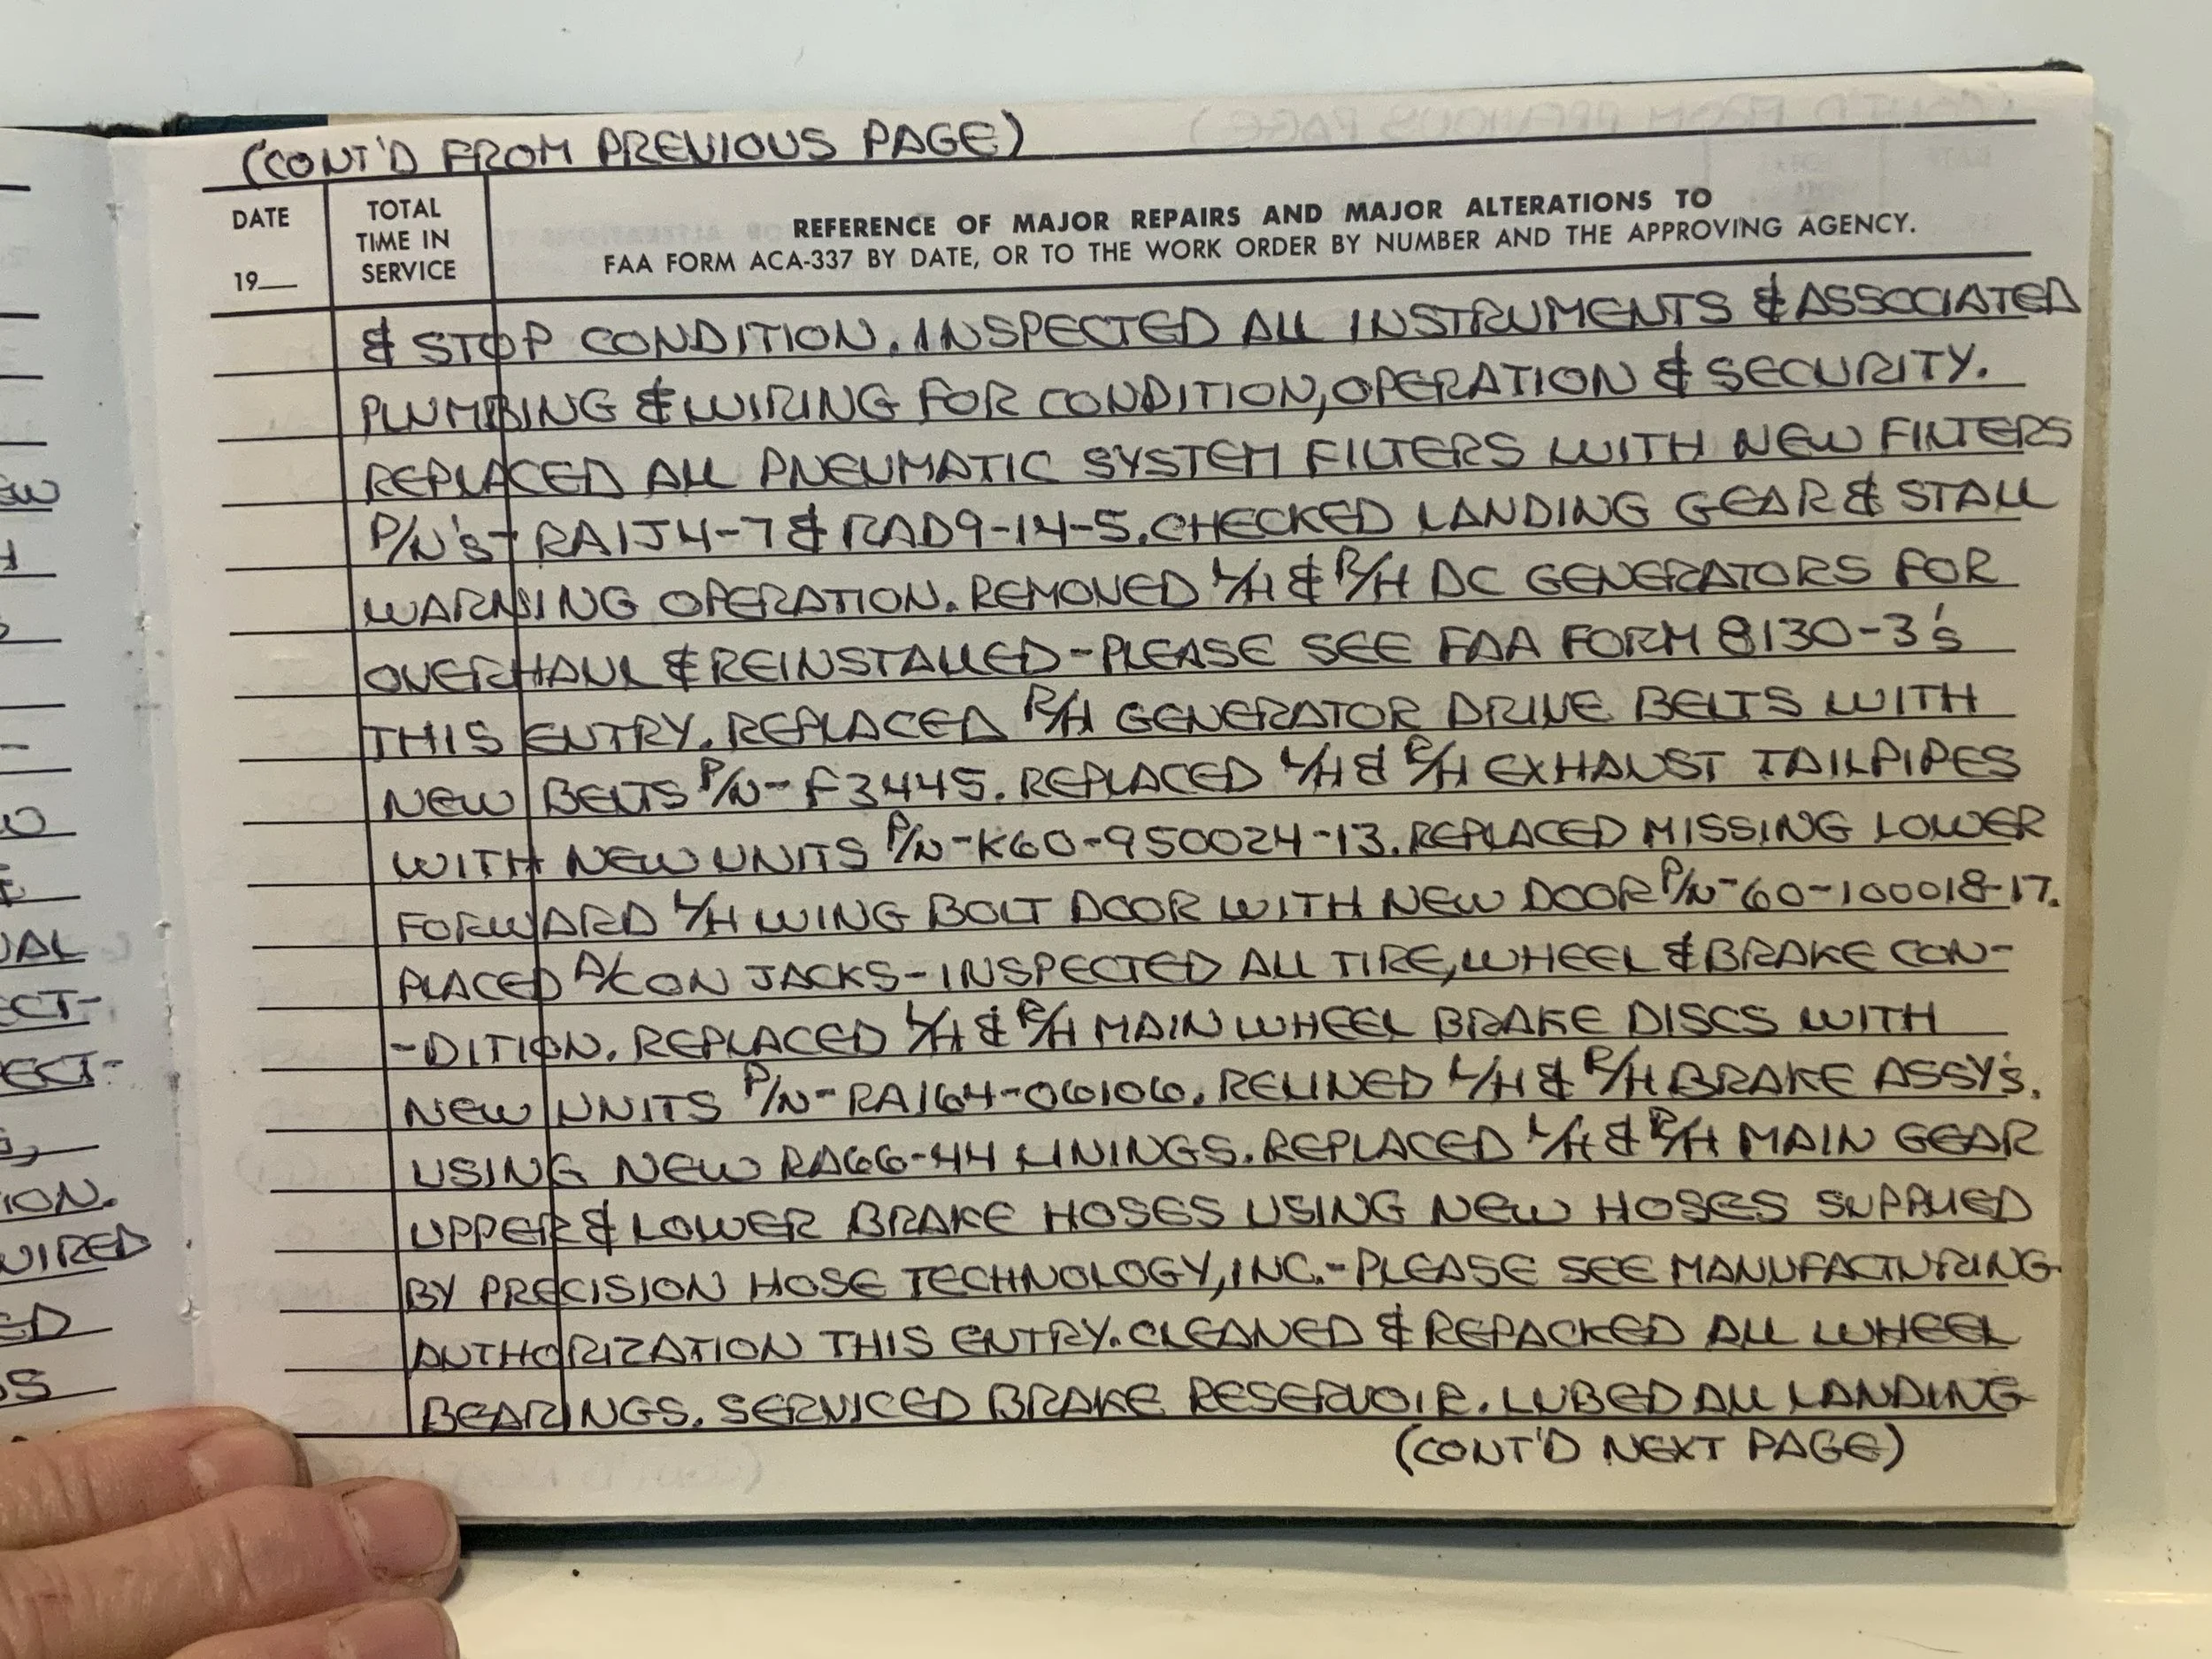 (CONT'D FROM PREVIOUS PAGE)
DATE
19__
TOTAL
TIME IN
SERVICE
REFERENCE OF MAJOR REPAIRS AND MAJOR ALTERATIONS TO
FAA FORM ACA-337 BY DATE, OR TO THE WORK ORDER BY NUMBER AND THE APPROVING AGENCY.
& STOP CONDITION. INSPECTED ALL INSTRUMENTS & ASSOCIATED
PLUMBING & WIRING FOR CONDITION, OPERATION & SECURITY.
REPLACED ALL PNEUMATIC SYSTEM FILTERS WITH NEW FILTERS
P/N's - RA1J4-7 & RAD9-14-5. CHECKED LANDING GEAR & STALL
WARNING OPERATION. REMOVED L/H & R/H DC GENERATORS FOR
OVERHAUL & REINSTALLED - PLEASE SEE FAA FORM 8130-3's
THIS ENTRY. REPLACED R/H GENERATOR DRIVE BELTS WITH
NEW BELTS P/N - F3445. REPLACED L/H & R/H EXHAUST TAILPIPES
WITH NEW UNITS P/N - K60-950024-13. REPLACED MISSING LOWER
FORWARD L/H WING BOLT DOOR WITH NEW DOOR P/N - 60-100018-17.
PLACED A/C ON JACKS - INSPECTED ALL TIRE, WHEEL & BRAKE CON-
-DITION. REPLACED L/H & R/H MAIN WHEEL BRAKE DISCS WITH
NEW UNITS P/N - RA164-06106. RELINED L/H & R/H BRAKE ASSY's.
USING NEW RA66-44 LININGS. REPLACED L/H & R/H MAIN GEAR
UPPER & LOWER BRAKE HOSES USING NEW HOSES SUPPLIED
BY PRECISION HOSE TECHNOLOGY, INC. - PLEASE SEE MANUFACTURING
AUTHORIZATION THIS ENTRY. CLEANED & REPACKED ALL WHEEL
BEARINGS. SERVICED BRAKE RESERVOIR. LUBED ALL LANDING
(CONT'D NEXT PAGE)